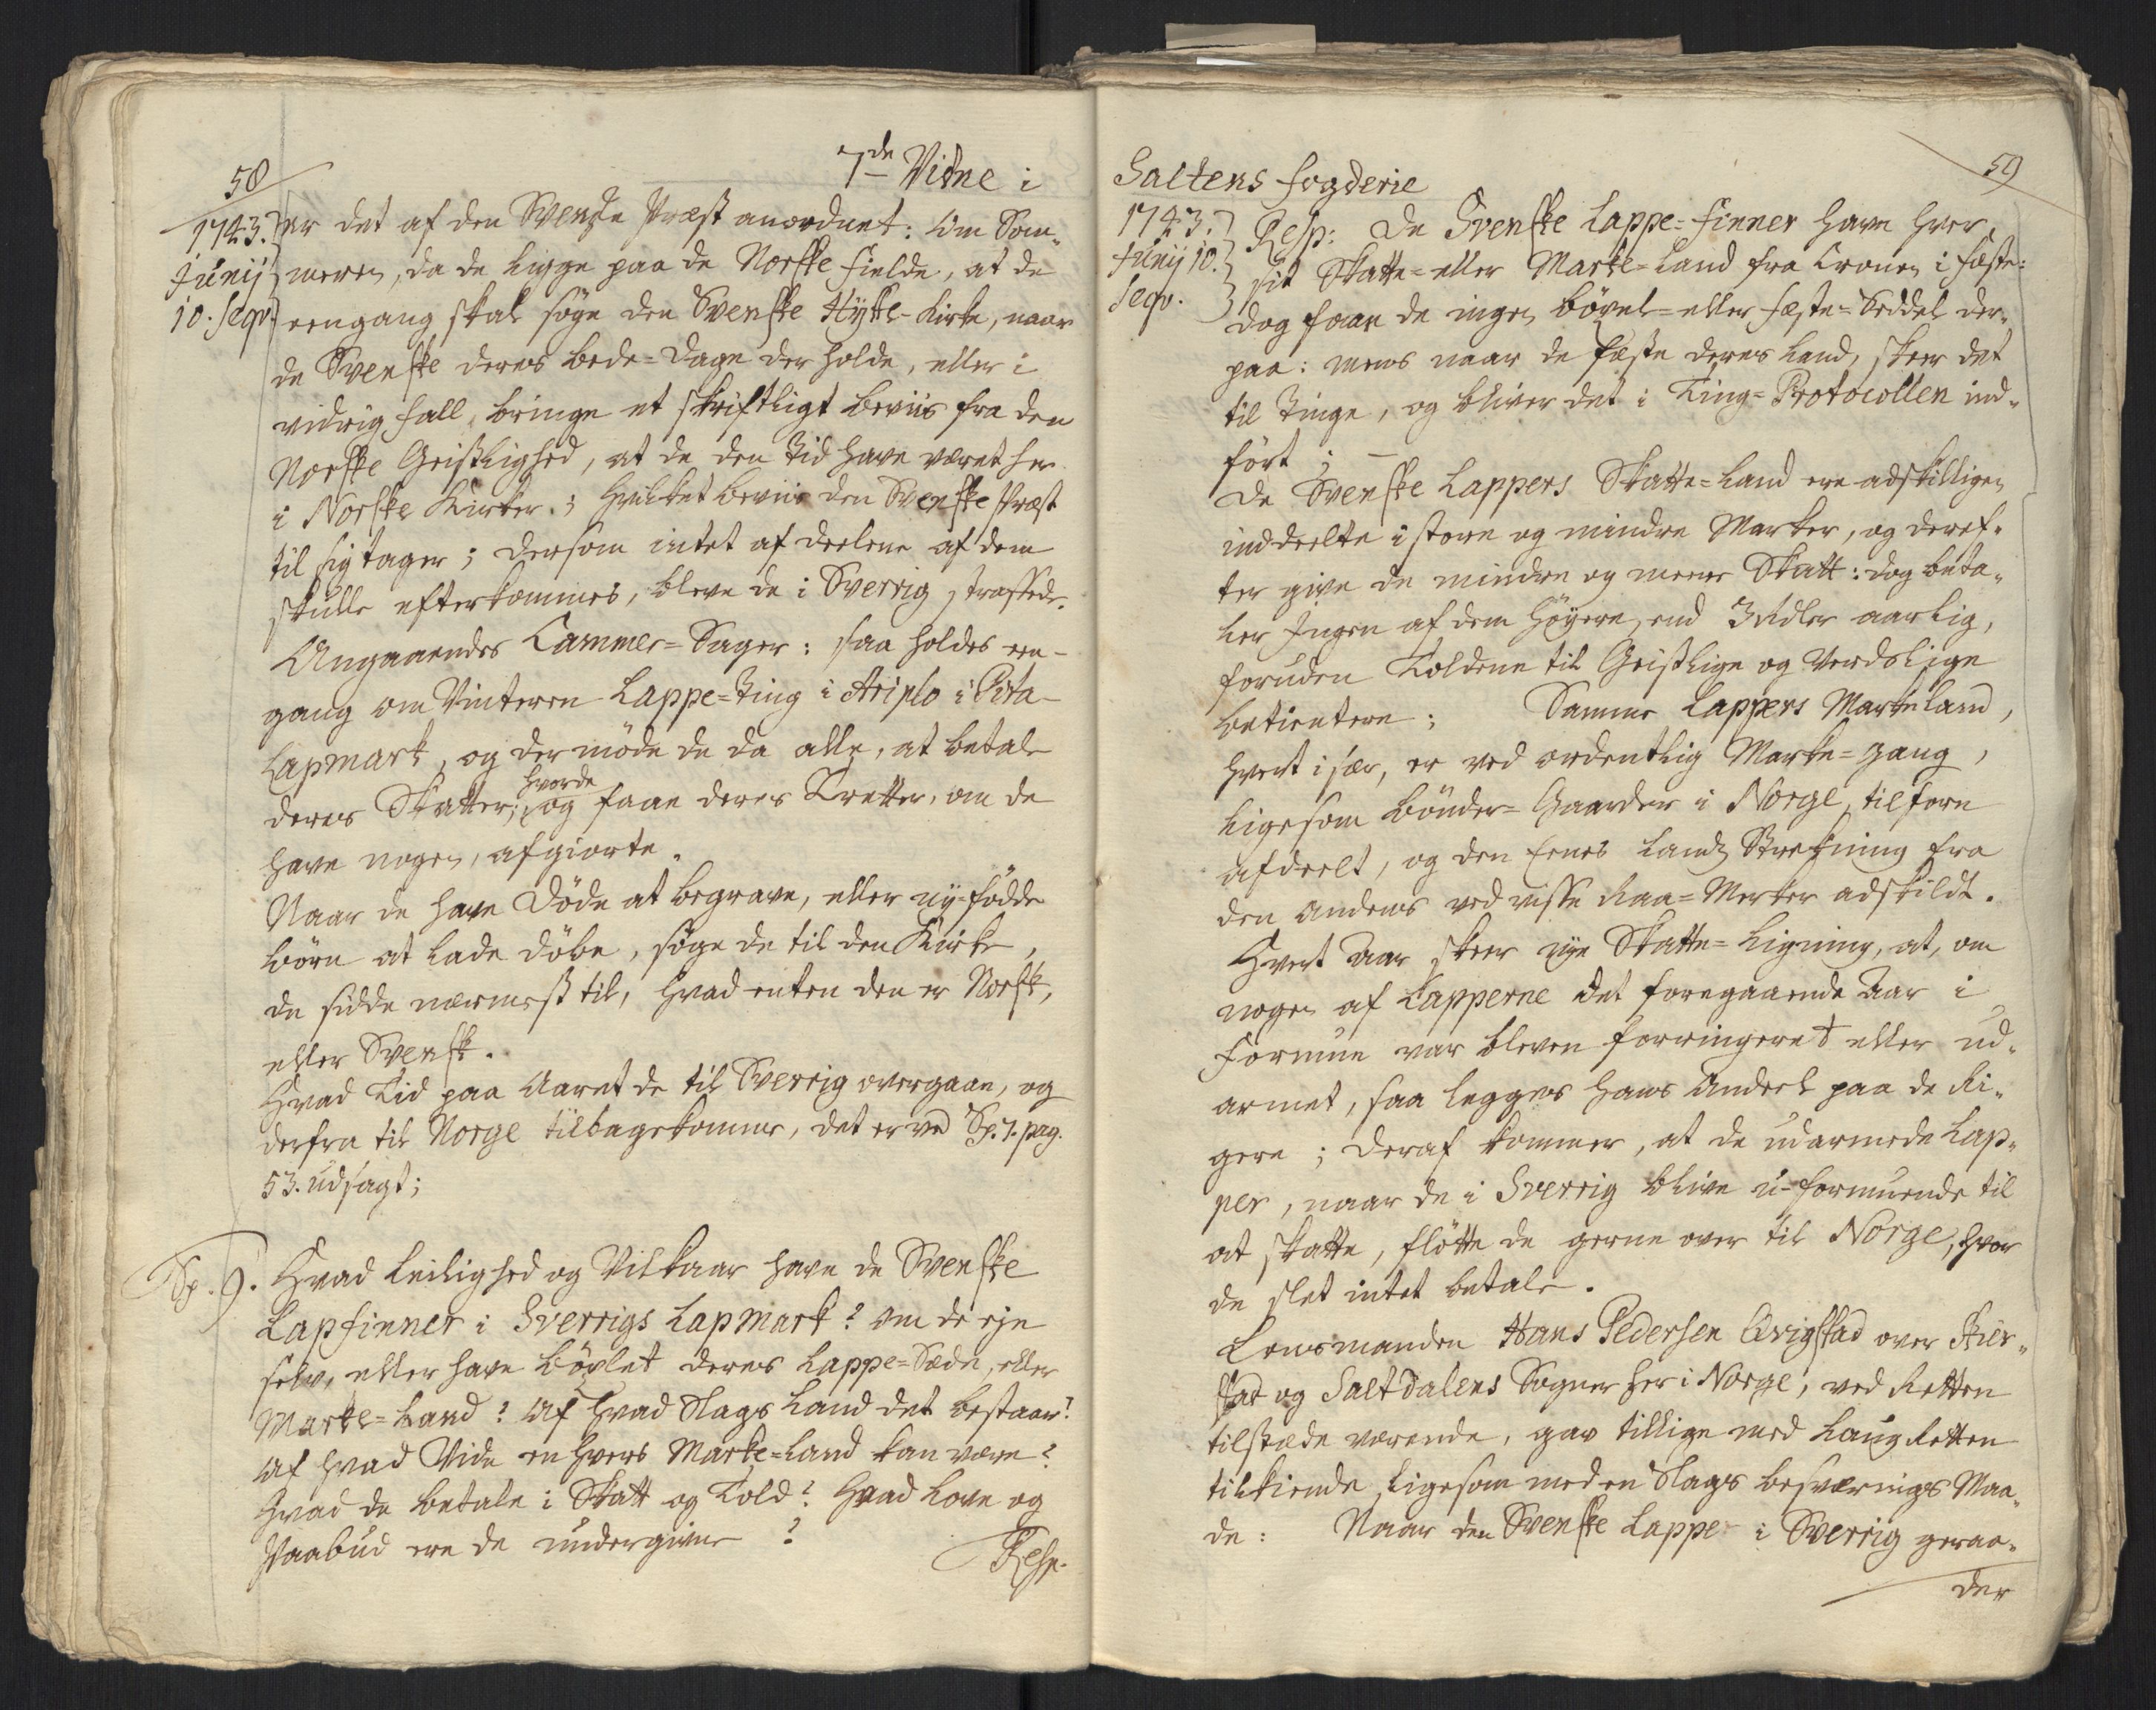 58
7de Vidne i
1743. er det af den Svenske Præst anordnet: Om Som-
Junij meren, da de ligge paa de Norske Fielde, at de
10. seqv. eengang skal søge den Svenske Hytte-Kirke, naar
de Svenske deres Bede-Dage der holde, eller i
vidrig fall, bringe et skriftligt Beviis fra den
Norske Geistlighed, at de den Tid have været her
i Norske Kirker.; Hvilket beviis den Svenske Præst
til sig tager; dersom intet af deelene af dem
skulle efterkommes, bleve de i Sverrig straffede.
Angaaendes Cammer-Sager: saa holdes een-
gang om Vinteren Lappe-Ting i Ariplo i Pita-
Lapmark, og der møde de da alle, at betale
deres Skatter; hvorde og faae deres Trætter, om de
have nogen, afgiorte.
Naar de have Døde at begrave, eller ny-fødde
børn at lade døbe, søge de til den Kirke,
de sidde nærmest til, hvad enten den er Norsk,
eller Svensk.
Hvad Tid paa Aaret de til Sverrig overgaae, og
derfra til Norge tilbagekomme, det er ved Sp. 7. pag.
53. udsagt;
Sp. 9. Hvad Leilighed og Vilkaar have de Svenske
Lapfinner i Sverrigs Lapmark? om de eje
selv, eller have bøxlet deres Lappe-Sæde, eller
Marke-Land? Af hvad Slags Land det bestaar?
Af hvad Vide en hvers Marke-Land kan være?
Hvad de betale i Skatt og Told? Hvad Love og
Paabud ere de undergivne?
Resp.
59
Saltens Fogderie
1743. Resp: De Svenske Lappe-Finner have hver
Junij 10. sit Skatte- eller Marke-Land fra Cronen i fæste:
seqv. dog faae de ingen bøxel- eller fæste-Seddel der-
paa: mens naar de fæste deres Land, skeer det
til Tinge, og bliver det i Ting-Protocollen ind-
ført; —
De Svenske Lappers Skatte-Land ere adskilligen
inddeelte i store og mindre Marker, og deref-
ter give de mindre og meere Skatt: dog beta-
ler Ingen af dem høyere, end 3 Rdler aarlig,
foruden Toldene til Geistlige og Verdslige
betientere; Samme Lappers Markeland,
hvert især, er ved ordentlig Marke-gang,
ligesom bønder-Gaarder i Norge, tilforn
afdeelt, og den Eenes Lands Strekning fra
den Andens ved visse Raa-Merker adskildt.
Hvert Aar skeer nye Skatte-Ligning, at, om
nogen af Lapperne det foregaaende Aar i
Formue var bleven forringeret eller ud-
armet, saa legges hans Andeel paa de Ri-
gere; deraf kommer, at de udarmede Lap-
per, naar de i Sverrig blive u-formuende til
at skatte, fløtte de gerne over til Norge, hvor
de slet intet betale.
Lensmanden Hans Pedersen Qvigstad over Skier-
stad og Saltdalens Sogner her i Norge, ved Retten
tilstæde værende, gav tillige med Laug Retten
tilkiende, ligesom med en Slags besværings Maa-
de: Naar den Svenske Lappe i Sverrig geraa-
der